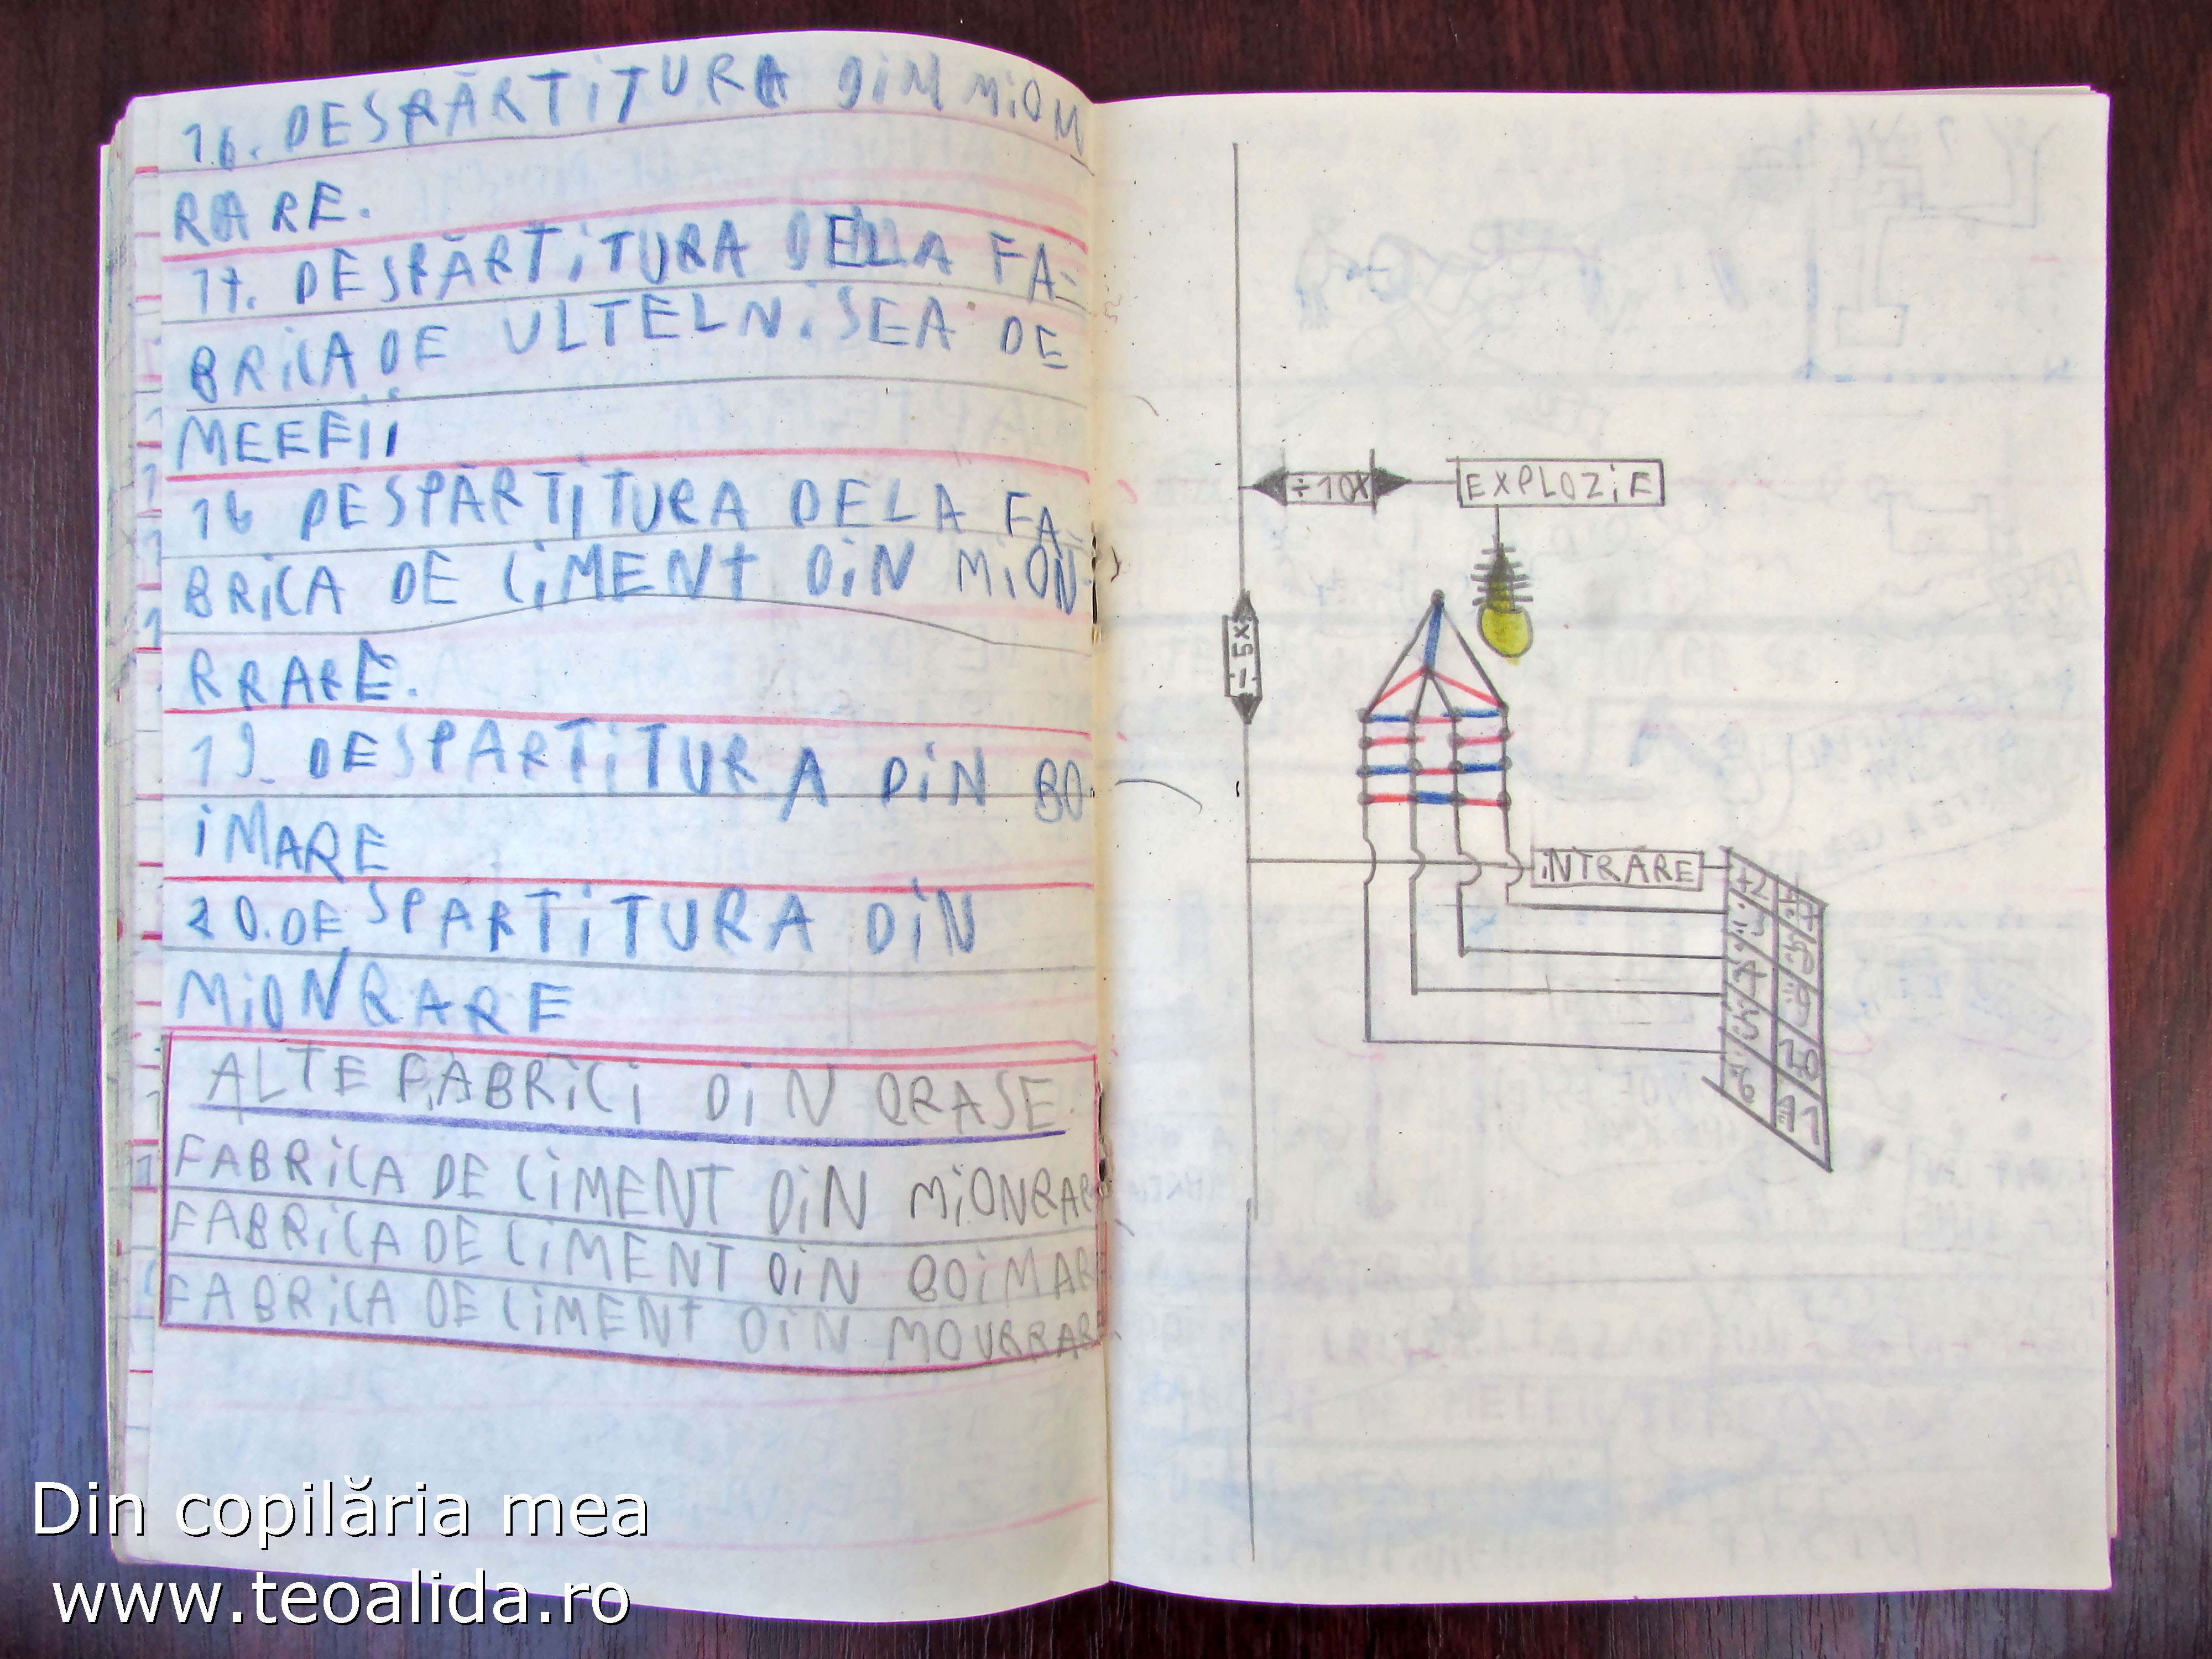 16. DESPĂRTiTURA DiM MiOM
RARE.
17. DESPĂRTiTURA DELA FA-
BRiCA DE ULTELNiSEA DE
MEEFII
16 DESPĂRTiTURA DELA FA-
BRiCA DE CiMENT DiN MiON-
RRARE.
19. DESPARTiTURA DiN BO-
iMARE
20. DESPARTiTURA DiN
MiONRARE
ALTE FABRiCi DiN ORASE
FABRiCA DE CiMENT DiN MiONRAR
FABRiCA DE CiMENT DiN BOiMAR
FABRiCA DE CiMENT DiN MOURRARE
÷10X
EXPLOZiE
÷5X
iNTRARE
Din copilăria mea
www.teoalida.ro